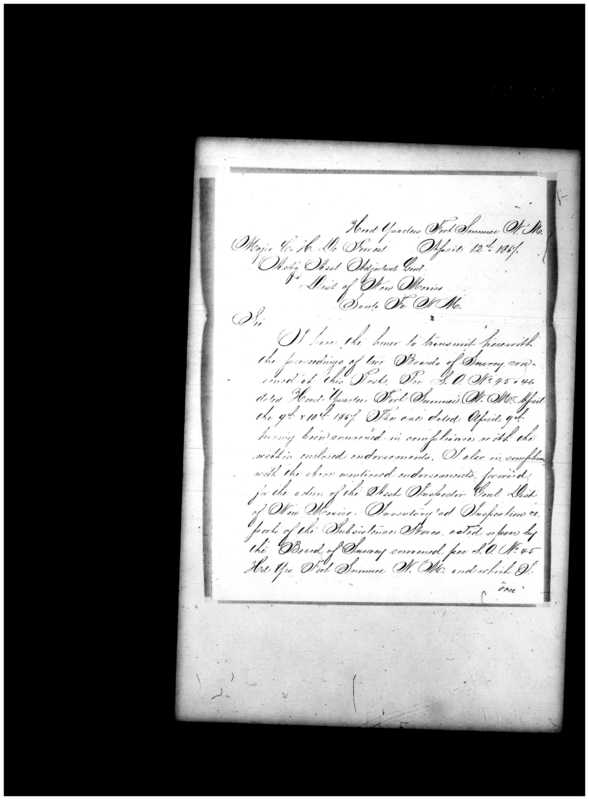 Head Quarters Fort Sumner N. M.
Major C. H. De Forrest April 12th 1867.
Actg Asst Adjutant Genl
Dist of New Mexico
Santa Fe N. M.
Sir
I have the honor to transmit herewith
the proceedings of two Boards of Survey con-
vened at this Post, Per S. O. No 45 & 46
dated Head Quarters Fort Sumner N. M. April
the 9th & 10th 1867. The one dated April 9th
having been convened in compliance with the
within enclosed endorsements. I also in complian
with the above mentioned endorsements forward
for the action of the Asst Inspector Genl Dist
of New Mexico. Inventory and Inspection re
ports of the Subsistence Stores acted upon by
the Board of Survey convened per S. O. No 45
Hd. Qrs Fort Sumner N. M. and which I.